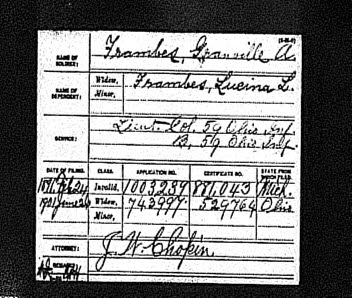 NAME OF SOLDIER: Frambes, Granville A.
NAME OF DEPENDENT: Widow, Frambes, Lucina L.
Minor,
SERVICE: Lieut Col. 59 Ohio Inf.
B, 59 Ohio Inf.
DATE OF FILING. CLASS. APPLICATION NO. CERTIFICATE NO. STATE FROM WHICH FILED.
Invalid, 1003239 881,043 Mich.
1901 June Widow, 743997 529764 Ohio
Minor,
ATTORNEY: J. W. Chopin
REMARKS: